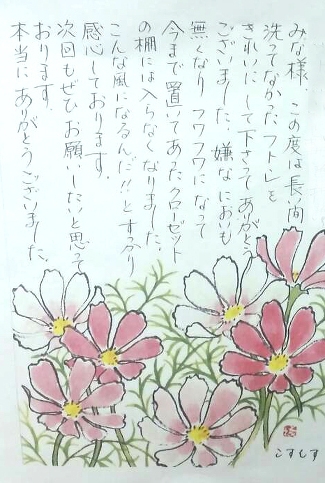 みな様、この度は長い間
洗ってなかったフトンを
きれいにして下さってありがとう
ございました。嫌なにおいも
無くなり フワフワになって
今まで置いてあったクローゼット
の棚には入らなくなりました。
こんな風になるんだ!!とすっかり
感心しております。
次回もぜひお願いしたいと思って
おります。
本当に ありがとうございました。
こすもす